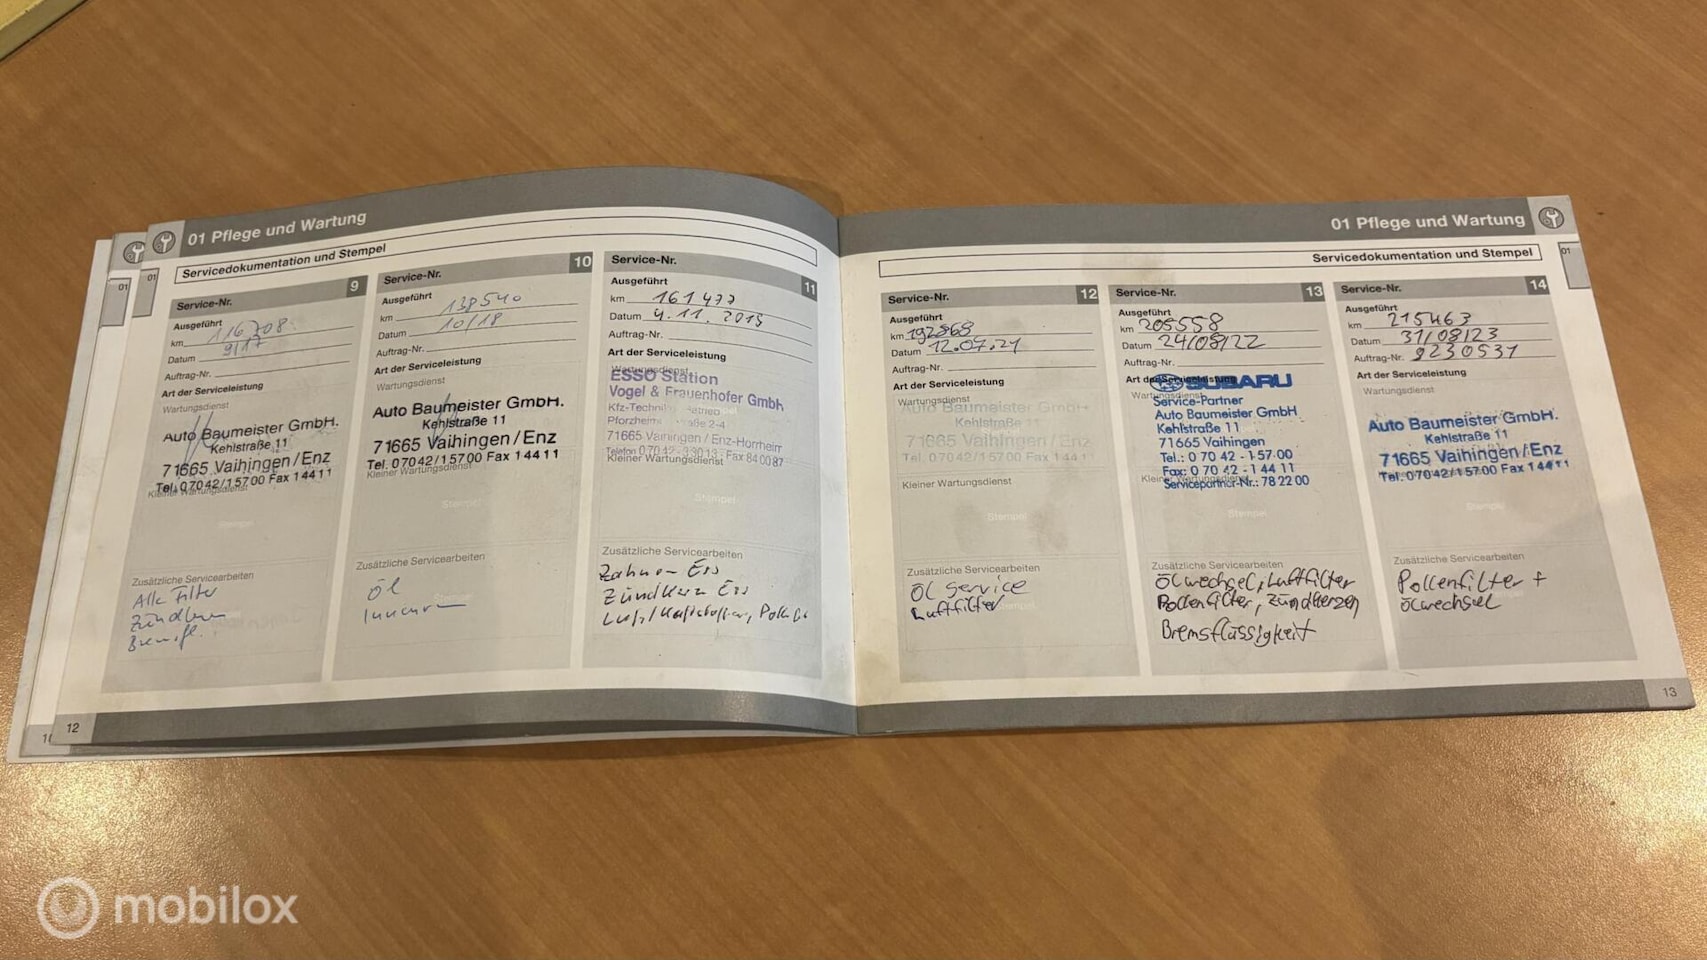 01 Pflege und Wartung
Servicedokumentation und Stempel
01
01
Service-Nr. 9
Ausgeführt
km 116708
Datum 9/17
Auftrag-Nr.
Art der Serviceleistung
Wartungsdienst
Auto Baumeister GmbH.
Kehlstraße 11
71665 Vaihingen/Enz
Tel. 07042/15700 Fax 14411
Kleiner Wartungsdienst
Stempel
Zusätzliche Servicearbeiten
Alle Filter
12
Service-Nr. 10
Ausgeführt
km 138540
Datum 10/18
Auftrag-Nr.
Art der Serviceleistung
Wartungsdienst
Auto Baumeister GmbH.
Kehlstraße 11
71665 Vaihingen/Enz
Tel. 07042/15700 Fax 14411
Kleiner Wartungsdienst
Stempel
Zusätzliche Servicearbeiten
Öl
Service-Nr. 11
Ausgeführt
km 161477
Datum 4.11.2019
Auftrag-Nr.
Art der Serviceleistung
Wartungsdienst
ESSO Station
Vogel & Frauenhofer GmbH
71665 Vaihingen / Enz-Horrheim
Kleiner Wartungsdienst
Stempel
Zusätzliche Servicearbeiten
01 Pflege und Wartung
Servicedokumentation und Stempel
01
Service-Nr. 12
Ausgeführt
km 192868
Datum 12.07.21
Auftrag-Nr.
Art der Serviceleistung
Wartungsdienst
Auto Baumeister GmbH
Kehlstraße 11
71665 Vaihingen/Enz
Tel. 07042/15700 Fax 14411
Kleiner Wartungsdienst
Stempel
Zusätzliche Servicearbeiten
Öl Service
Luftfilter
Service-Nr. 13
Ausgeführt
km 205558
Datum 24/08/22
Auftrag-Nr.
Art der Serviceleistung
SUBARU
Wartungsdienst
Service-Partner
Auto Baumeister GmbH
Kehlstraße 11
71665 Vaihingen
Tel.: 0 70 42 - 1 57 00
Fax: 0 70 42 - 1 44 11
Kleiner Wartungsdienst
Servicepartner-Nr.: 78 22 00
Stempel
Zusätzliche Servicearbeiten
Ölwechsel, Luftfilter
Pollenfilter, Zündkerzen
Bremsflüssigkeit
Service-Nr. 14
Ausgeführt
km 215463
Datum 31/08/23
Auftrag-Nr. 9230531
Art der Serviceleistung
Wartungsdienst
Auto Baumeister GmbH.
Kehlstraße 11
71665 Vaihingen/Enz
Tel. 07042/15700 Fax 14411
Stempel
Zusätzliche Servicearbeiten
Pollenfilter +
Ölwechsel
13
mobilox